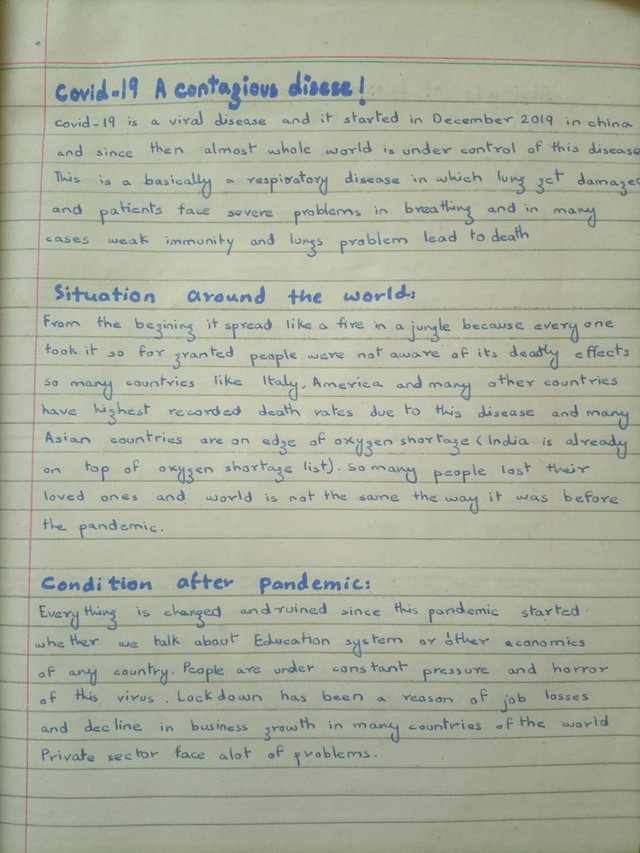 Covid-19 A contagious disese!
Covid-19 is a viral disease and it started in December 2019 in china
and since then almost whole world is under control of this disease
This is a basically a respiratory disease in which lung get damaged
and patients face severe problems in breathing and in many
cases weak immunity and lungs problem lead to death
Situation around the world:
From the begining it spread like a fire in a jungle because every one
took it so for granted people were not aware of its deadly effects
so many countries like Italy, America and many other countries
have highest recorded death rates due to this disease and many
Asian countries are on edge of oxygen shortage (India is already
on top of oxygen shortage list). So many people lost their
loved ones and world is not the same the way it was before
the pandemic.
Condition after pandemic:
Every thing is changed and ruined since this pandemic started.
whether we talk about Education system or other economics
of any country. People are under constant pressure and horror
of this virus. Lockdown has been a reason of job losses
and decline in business growth in many countries of the world
Private sector face alot of problems.